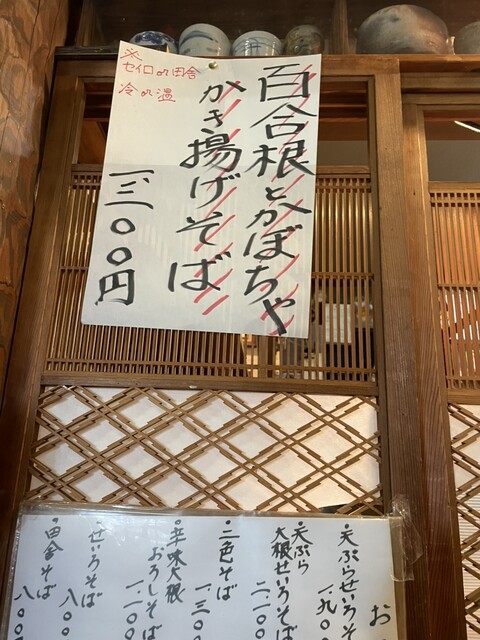 百合根とかぼちゃ
かき揚げそば
一、三〇〇円
※
セイロor田舎
冷or温
お
・天ぷらせいろそ
一.九〇
・天ぷら
大根せいろそば
二.一〇〇
・二色そば
一.三〇〇
・辛味大根
おろしそば
一.一〇〇
・せいろそば
八〇〇
・田舎そば
八〇〇